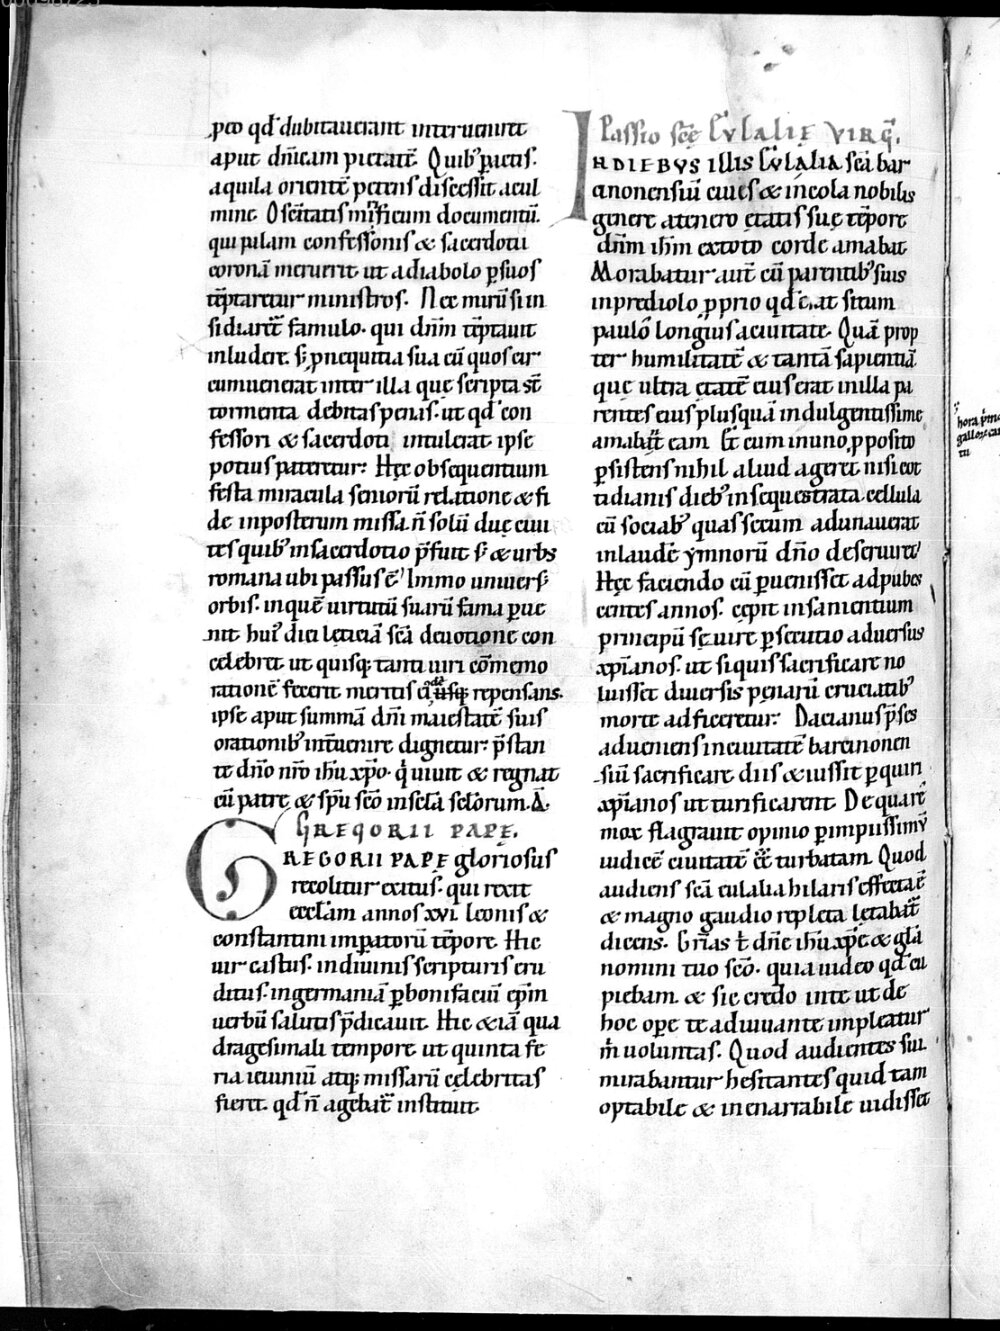 pco qđ dubitauerant interueniret
aput dñicam pietatē. Quibꝰ pactis.
aquila orientē petens discessit a cul
mine. O scitatis mirificum documentū.
qui palam confessionis & sacerdotii
coronā meruerit ut a diabolo ꝑ suos
tēptaretur ministros. Nec mirū si in
sidiaret̄ famulo. qui dñm tēptauit
inludere. sꝫ ꝓ nequitia sua cū quos cir
cumuenerat inter illa quę scripta st̄
tormenta debitas penis. ut qđ con
fessori & sacerdoti intulerat ipse
potius pateretur. Hęc obsequentium
festa miracula seniorū relatione & fi
de in posterum missa. ñ solū duę ciui
tes quibꝰ in sacerdotio p̄fuit sꝫ & urbs
romana ubi passus ē. Immo uniuersꝰ
orbis. in quē uirtutū suarū fama ꝑue
nit huiꝰ diei leticiā scā deuotione con
celebret ut quisqꝫ tanti uiri cōmemo
rationē fecerit meritis repensans.
ipse aput summā dñi maiestatē suis
orationibꝰ int̄uenire dignetur. p̄stan
te dño nr̄o ihū xp̄o. q̇ uiuit & regnat
cū patre & sp̄u sc̄o in sc̄la sc̄lorum. A̅.
GREGORII PAPĘ.
GREGORII PAPĘ gloriosus
recolitur exitus. qui rexit
eccl̄am annos xvi. leonis &
constantini imꝑatorū tēpore. Hic
uir castus. in diuinis scripturis eru
ditus. in germaniā ꝑ bonifaciū ep̄m
uerbū salutis p̄dicauit. Hic & iā qua
dragesimali tempore. ut quinta fe
ria ieiuniū atqꝫ missarū celebritas
fieret. qđ ñ agebat̄ instituit.
Passio scę EVLALIĘ VIRG.
IN DIEBVS illis EVLALIA scā bar
cinonensiū ciues & incola nobilis
genere a tenero ętatis suę tēpore
dñm ihm ex toto corde amabat
Morabatur aut̄ cū parentibꝰ suis
in prediolo ꝓprio qđ erat situm
paulo longius a ciuitate. Quā prop
ter humilitatē & tantā sapientiā
quę ultra ętatē eius erat in illa pa
rentes eius plusquā indulgentissime
amabāt eam. Et cum in uno ꝓposito
ꝑsistens nihil aliud ageret nisi cot
tidianis diebꝰ in sequestrata cellula
cū sociabꝰ quas secum adunauerat
in laudē ymnorū dño deseruiret
Hęc faciendo cū ꝑuenisset ad pubes
centes annos. cępit insanientium
principū sęuire ꝑsecutio aduersus
xp̄ianos. ut si quis sacrificare no
luisset diuersis pęnarū cruciatibꝰ
morte adficeretur. Dacianus p̄ses
adueniens in ciuitatē barcinonen
siū sacrificare diis & iussit ꝑquiri
xp̄ianos ut turificarent. De qua re
mox flagrauit opinio ꝑ impiissimū
iudicē ciuitatē eē turbatam. Quod
audiens scā eulalia hilaris effecta ē
& magno gaudio repleta lętabat̄
dicens. Gr̄as t̄ dñe ihū xp̄e & glā
nomini tuo sc̄o. quia uideo qđ cu
piebam. & sic credo in te ut de
hoc ope te adiuuante impleatur
m̄ uoluntas. Quod audientes sui.
mirabantur hesitantes quid tam
optabile & inenarrabile uidisset
hora p̄mo